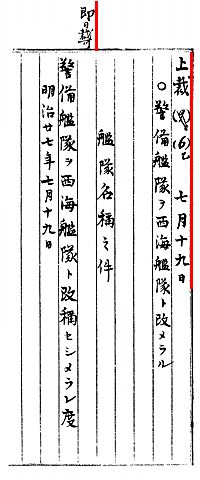 上裁 七月十九日
○警備艦隊ヲ西海艦隊ト改メラル
艦隊名稱之件
警備艦隊ヲ西海艦隊ト改稱セシメラレ度
明治廿七年七月十九日
即日